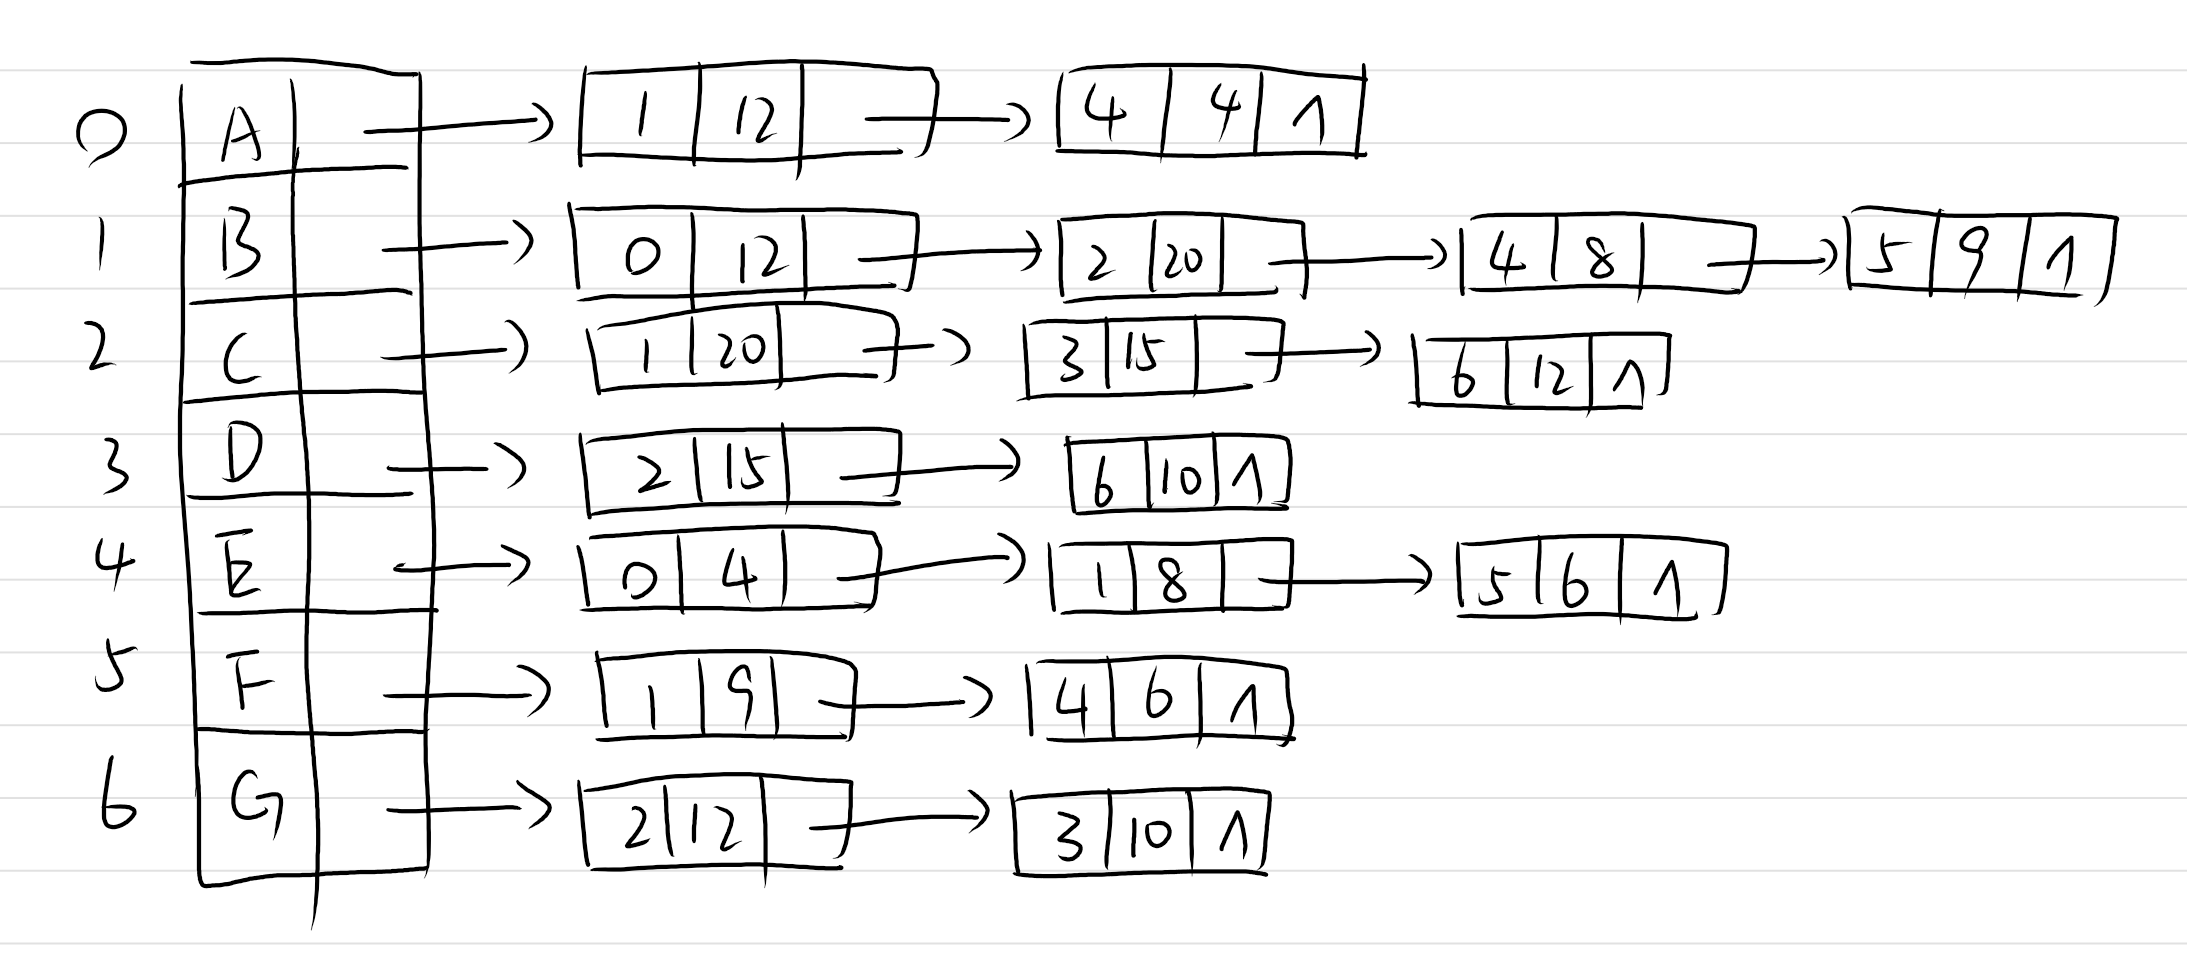 0 A 1 12 4 4 ∧
1 B 0 12 2 20 4 8 5 9 ∧
2 C 1 20 3 15 6 12 ∧
3 D 2 15 6 10 ∧
4 E 0 4 1 8 5 6 ∧
5 F 1 9 4 6 ∧
6 G 2 12 3 10 ∧